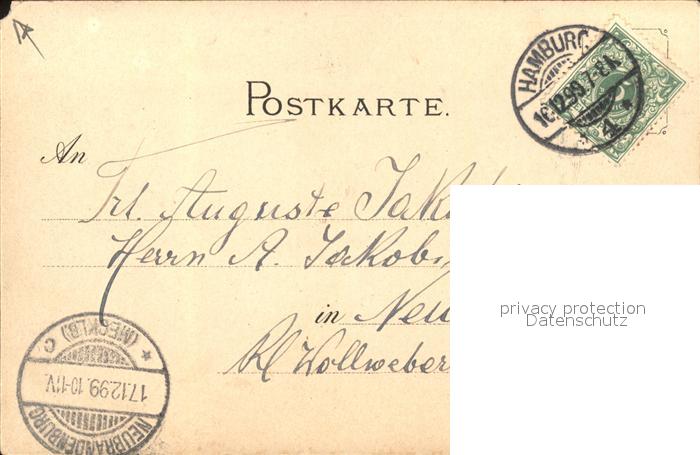 HAMBURG
16.12.99.7-8A.
* 4. *
POSTKARTE.
An
Frl. Auguste Jako
Herrn A. Jakobi
in Neu
Kl Wollweber
privacy protection
Datenschutz
NEUBRANDENBURG
17.12.99.10-11V.
* (MECKLB) C